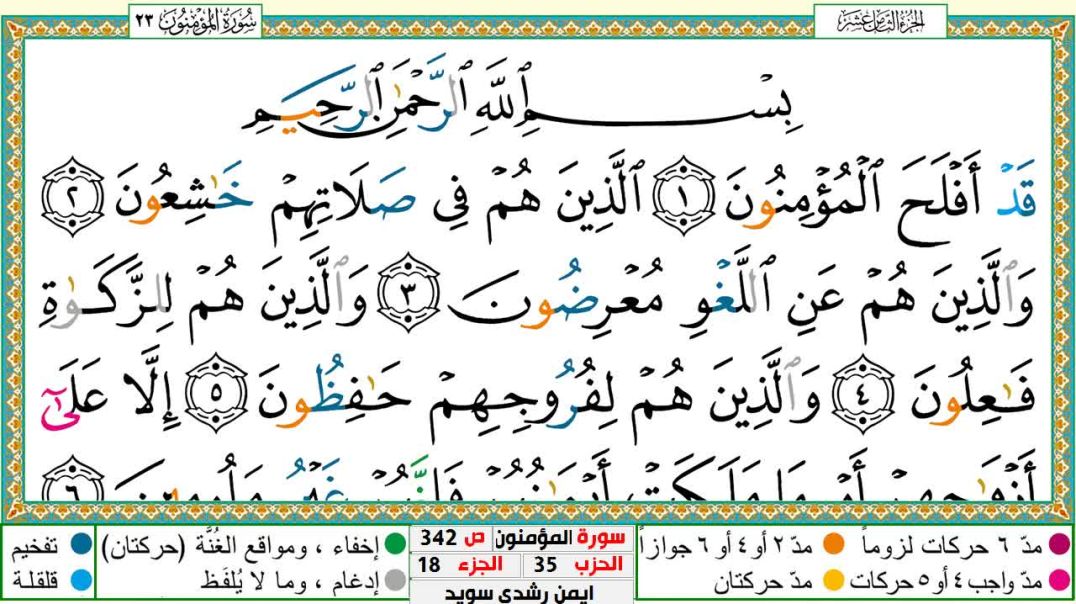 الجزء الثامن عشر
سورة المؤمنون ٢٣
بِسْمِ ٱللَّهِ ٱلرَّحْمَٰنِ ٱلرَّحِيمِ
قَدْ أَفْلَحَ ٱلْمُؤْمِنُونَ ١ ٱلَّذِينَ هُمْ فِى صَلَاتِهِمْ خَٰشِعُونَ ٢
وَٱلَّذِينَ هُمْ عَنِ ٱللَّغْوِ مُعْرِضُونَ ٣ وَٱلَّذِينَ هُمْ لِلزَّكَوٰةِ
فَٰعِلُونَ ٤ وَٱلَّذِينَ هُمْ لِفُرُوجِهِمْ حَٰفِظُونَ ٥ إِلَّا عَلَىٰٓ
أَزْوَٰجِهِمْ أَوْ مَا مَلَكَتْ أَيْمَٰنُهُمْ فَإِنَّهُمْ غَيْرُ مَلُومِينَ ٦
مدّ ٦ حركات لزوماً مدّ ٢ أو ٤ أو ٦ جوازاً
مدّ واجب ٤ أو ٥ حركات مدّ حركتان
سورة المؤمنون ص 342
الحزب 35 الجزء 18
ايمن رشدي سويد
إخفاء ، ومواقع الغُنَّة (حركتان) تفخيم
إدغام ، وما لا يُلفَظ قلقلة